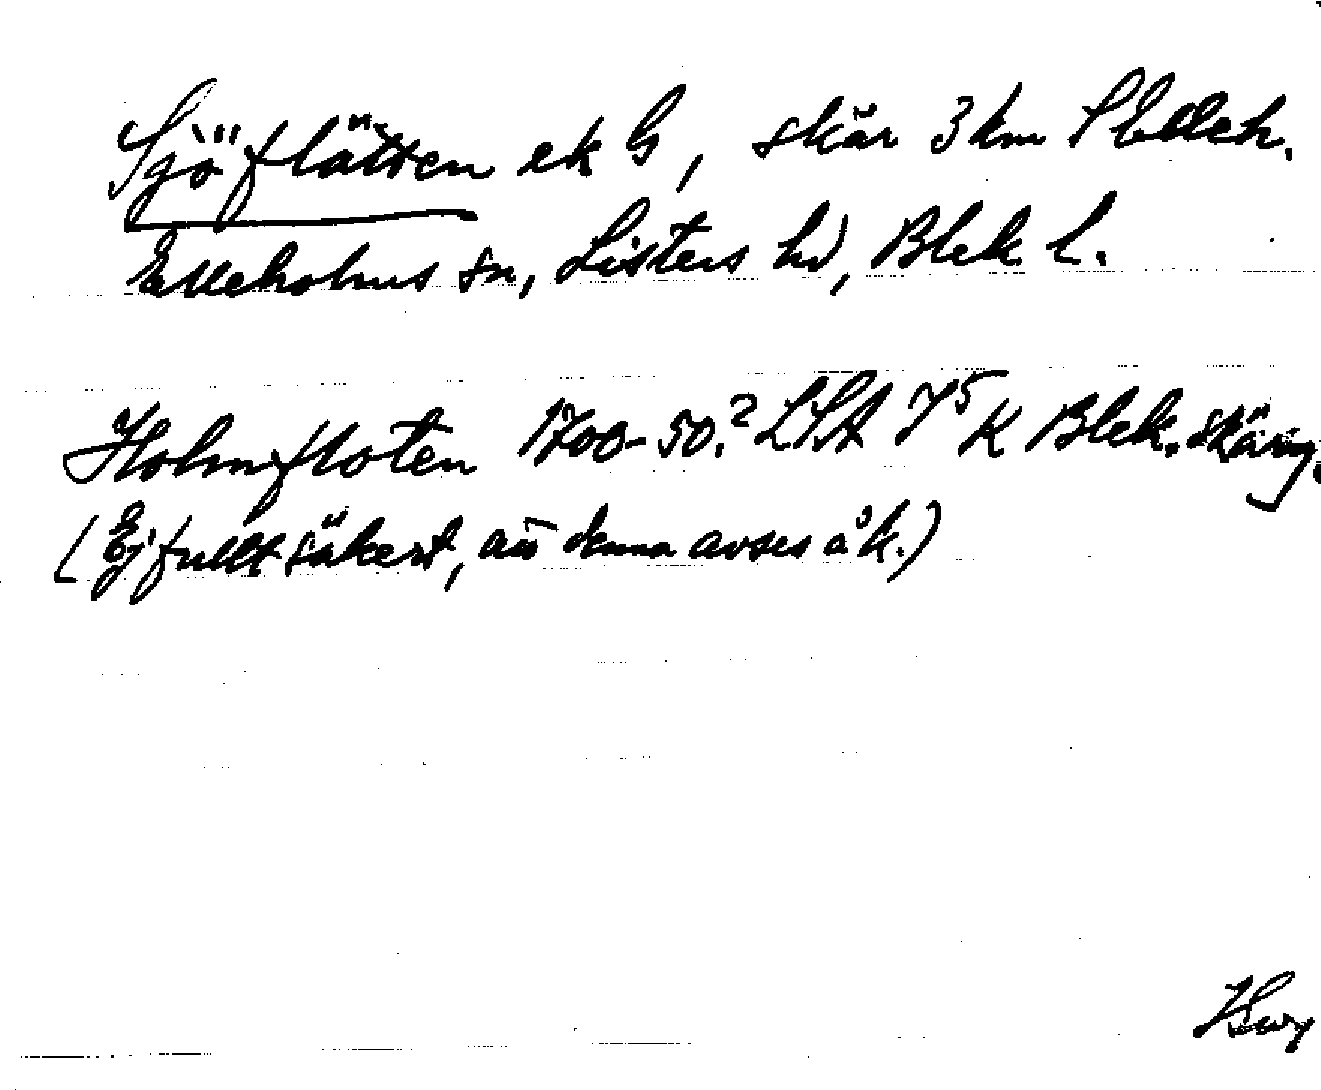 Sjöflätten ek G, skär 3 km S Elleh.
Ellehohms sn, Listers hd, Blek l.
Holmfloten 1700-50.? LSA 7⁵ K Blek. skärg.
(Ej fullt säkert, att denna avses å k.)